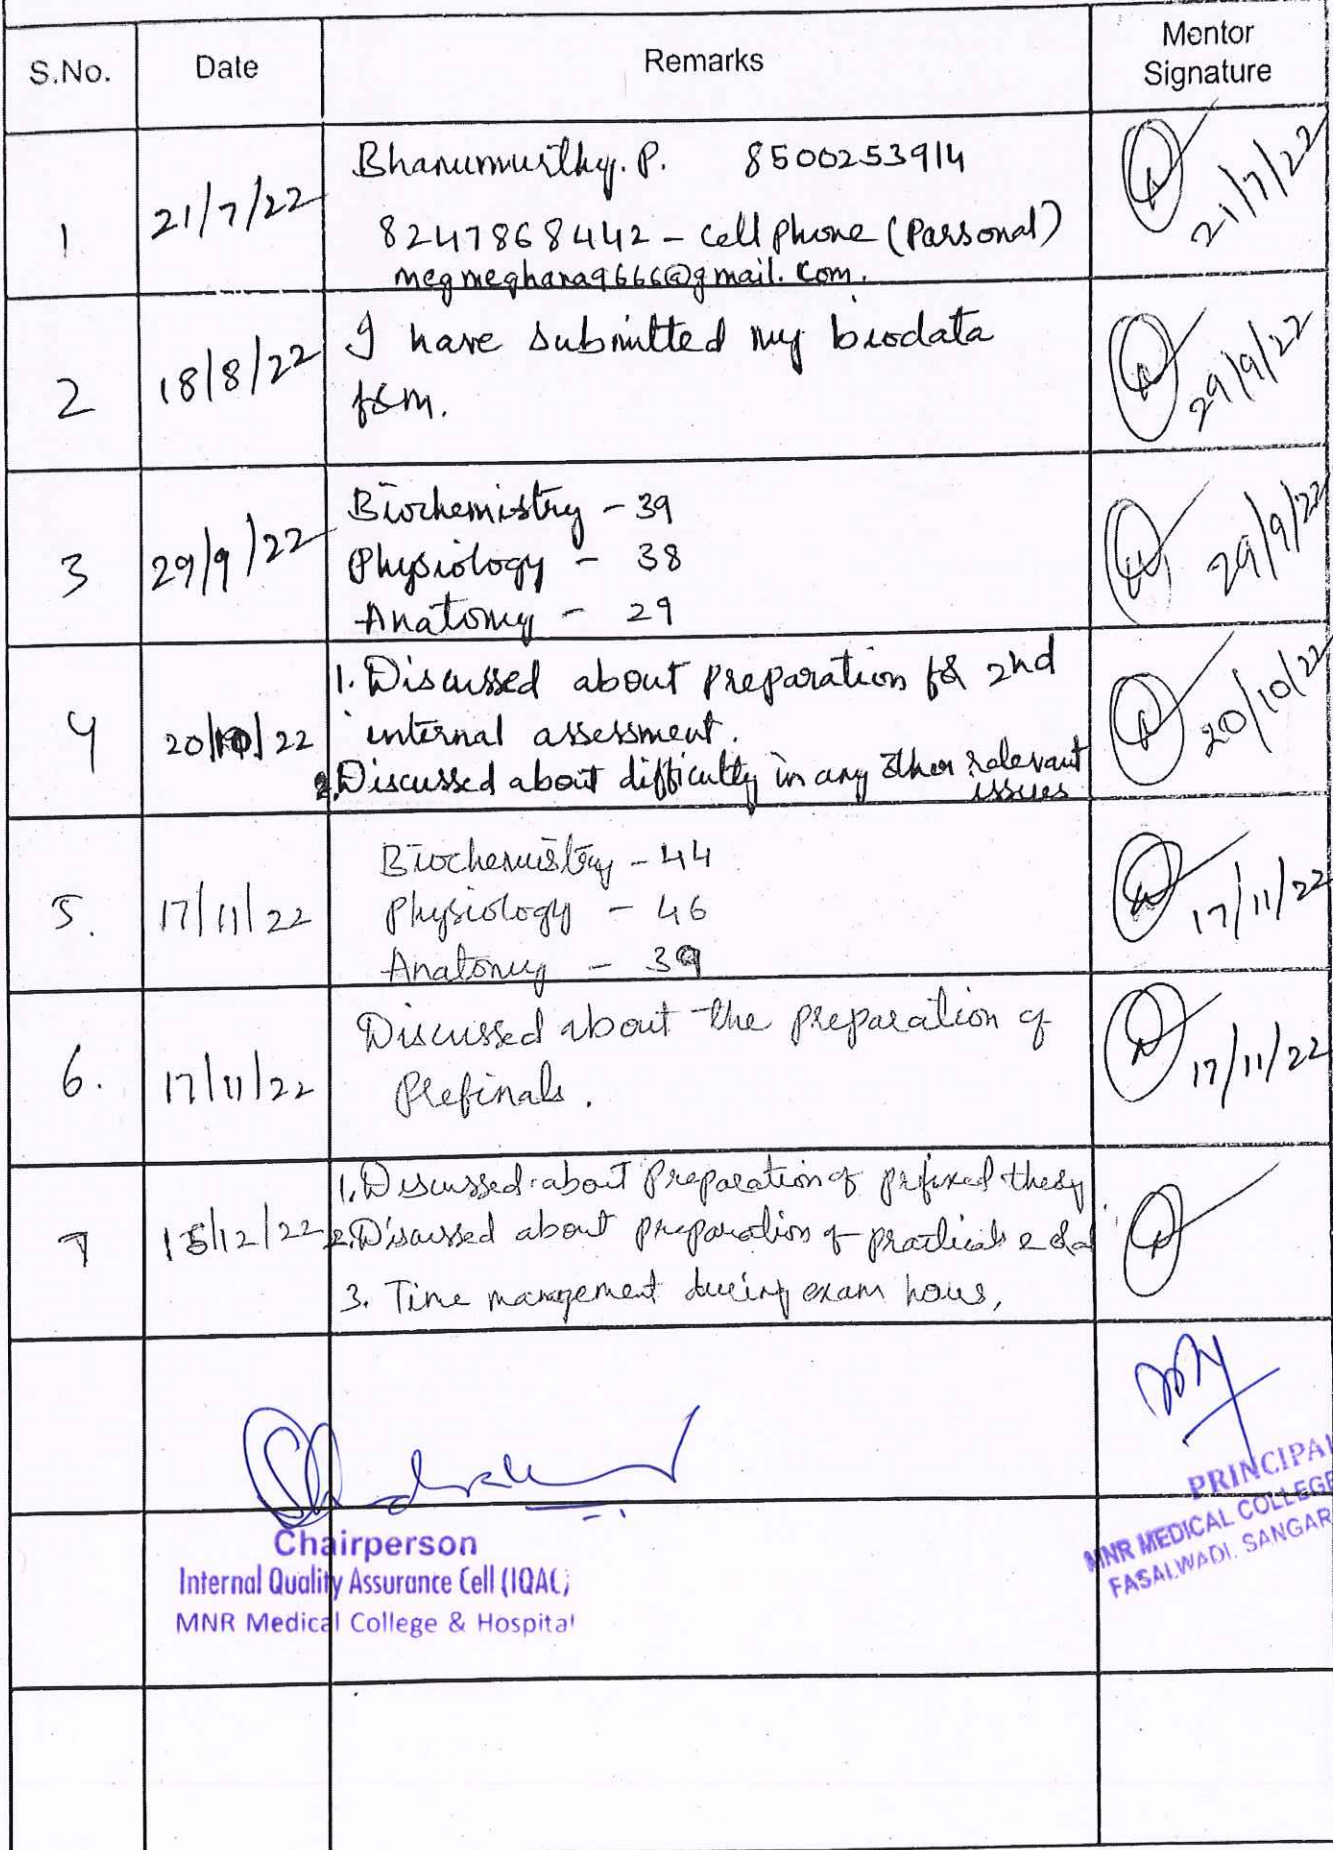 S.No. Date Remarks Mentor Signature
1 21/7/22 Bhanumurthy. P. 8500253914 21/7/22
8247868442 - cell phone (Parsonal)
megmeghana9666@gmail.com.
2 18/8/22 I have submitted my biodata 29/9/22
form.
3 29/9/22 Biochemistry - 39 29/9/22
Physiology - 38
Anatomy - 29
4 20/10/22 1. Discussed about preparation for 2nd 20/10/22
internal assessment.
2. Discussed about difficulty in any other relevant
issues
5. 17/11/22 Biochemistry - 44 17/11/22
Physiology - 46
Anatomy - 39
6. 17/11/22 Discussed about the preparation of 17/11/22
Prefinals.
7 15/12/22 1. Discussed about Preparation of theory
2. Discussed about preparation of practicals
3. Time management during exam hours,
Chairperson
Internal Quality Assurance Cell (IQAC)
MNR Medical College & Hospital
PRINCIPAL
MNR MEDICAL COLLEGE
FASALWADI, SANGAR